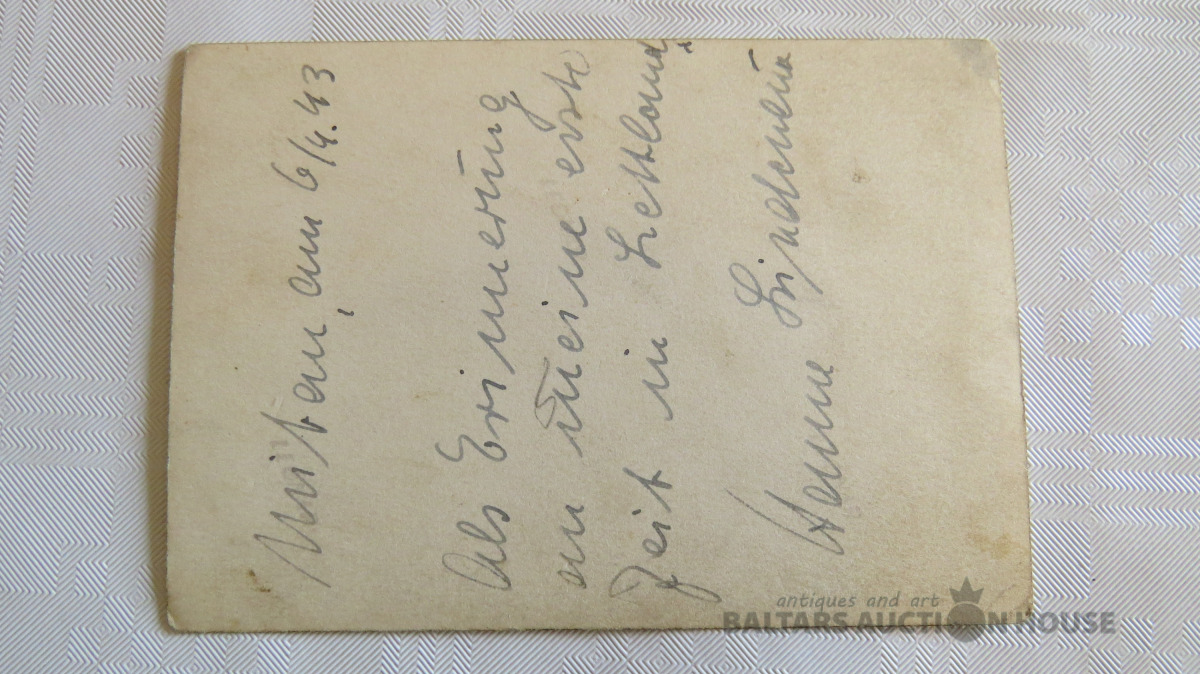 Mitau, am 6/4.43
Als Erinnerung
an meine erste
Zeit in Lettland.
Hanne
antiques and art
BALTARS AUCTION HOUSE